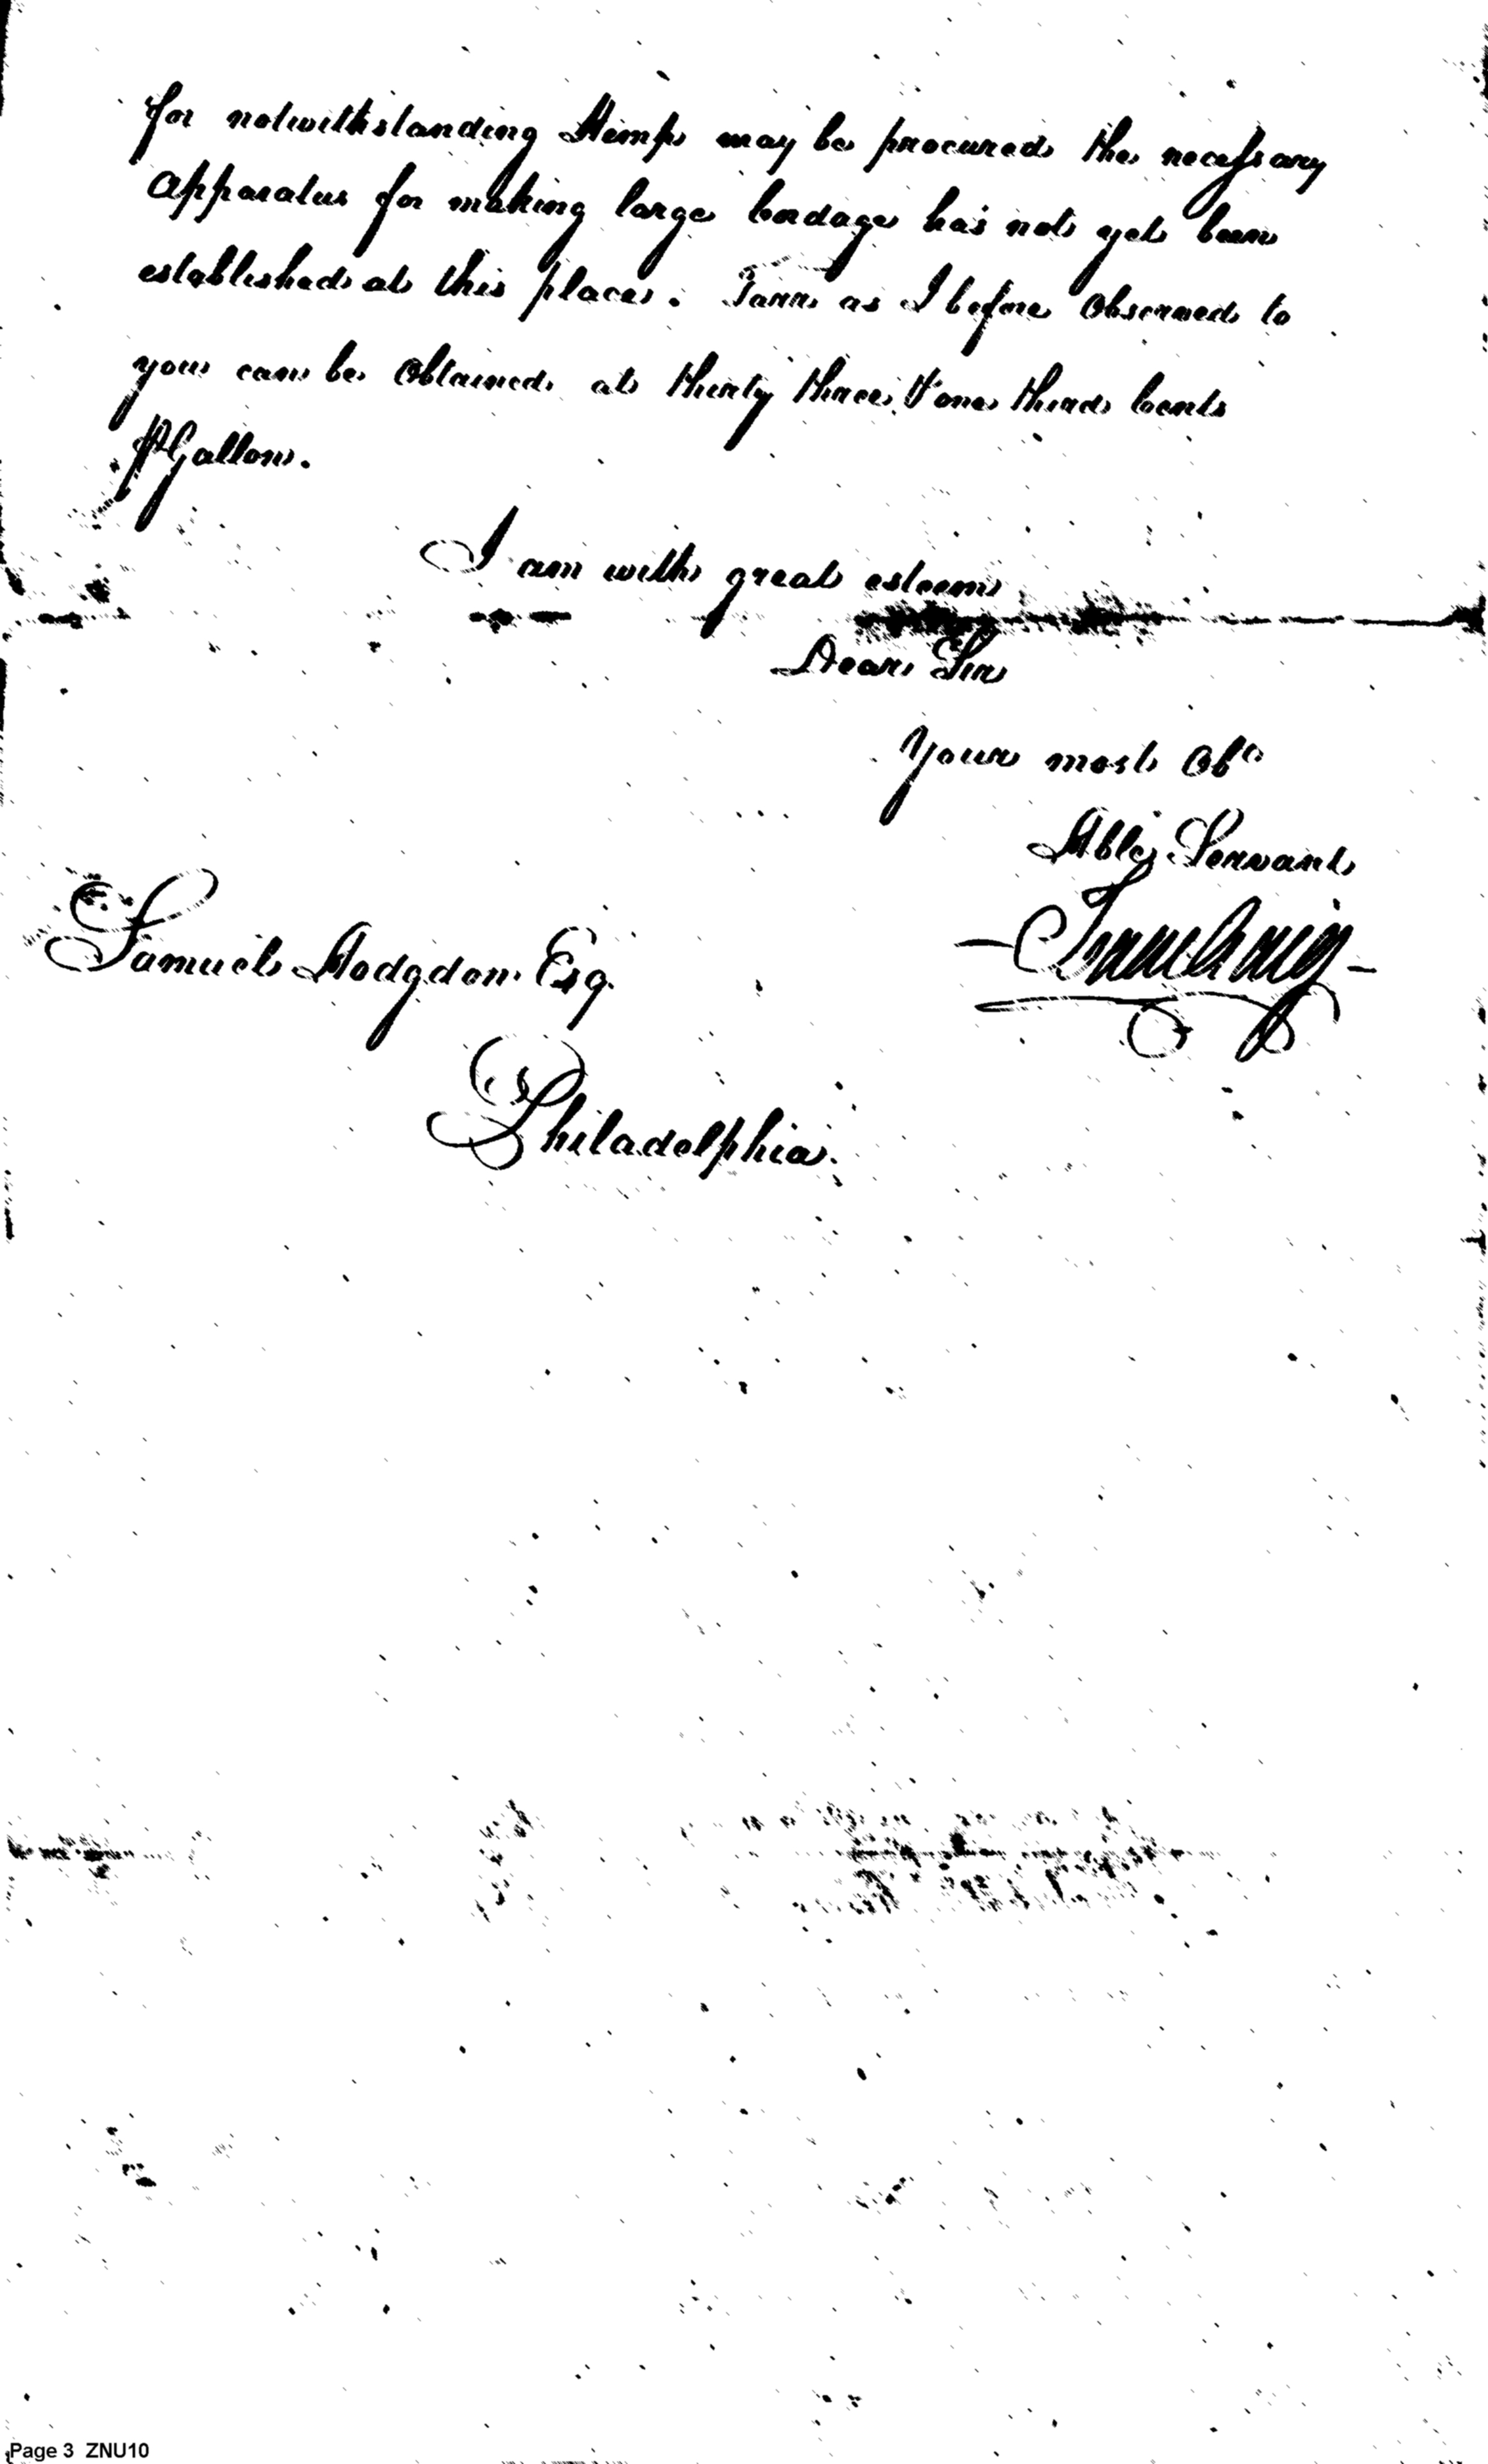 for notwithstanding Hemp may be procured the necessary
Apparatus for making large Cordage has not yet been
established at this place. Tarr as I before Observed to
you can be Obtained at thirty three & one third Cents
⅌ Gallon.
I am with great esteem
Dear Sir
Your most Obt
Hble Servant
Isaac Craig
Samuel Hodgdon Esq.
Philadelphia.
Page 3 ZNU10